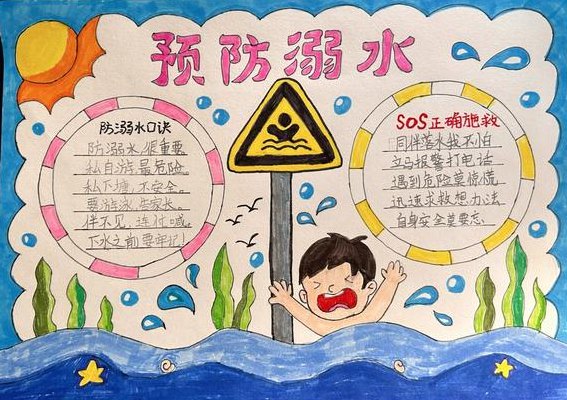 预防溺水
防溺水口诀
防溺水,很重要
私自游,最危险
私下塘,不安全。
要游泳,告家长。
伴不见,连忙喊,
下水之前要牢记!
SOS正确施救
同伴落水我不怕
立马报警打电话
遇到危险莫惊慌
迅速求救想办法
自身安全莫要忘